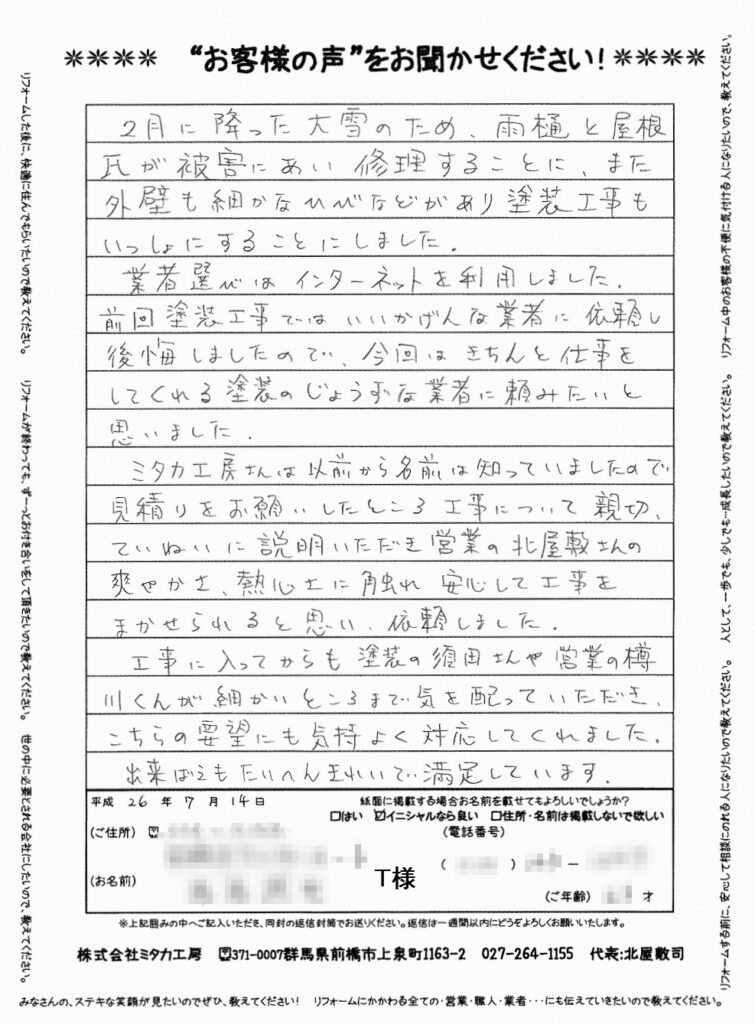 ＊＊＊＊ “お客様の声”をお聞かせください！ ＊＊＊＊
2月に降った大雪のため、雨樋と屋根
瓦が被害にあい修理することに、また
外壁も細かなひびなどがあり塗装工事も
いっしょにすることにしました。
業者選びはインターネットを利用しました。
前回塗装工事ではいいかげんな業者に依頼し
後悔しましたので、今回はきちんと仕事を
してくれる塗装のじょうずな業者に頼みたいと
思いました。
ミタカ工房さんは以前から名前は知っていましたので
見積りをお願いしたところ工事について親切、
ていねいに説明いただき営業の北屋敷さんの
爽やかさ、熱心さに触れ安心して工事を
まかせられると思い、依頼しました。
工事に入ってからも塗装の須田さんや営業の樽
川くんが細かいところまで気を配っていただき、
こちらの要望にも気持よく対応してくれました。
出来ばえもたいへんきれいで満足しています。
平成 26 年 7 月 14 日
紙面に掲載する場合お名前を載せてもよろしいでしょうか？
□はい ☑イニシャルなら良い □住所・名前は掲載しないで欲しい
(ご住所) 〒
(電話番号)
( ) −
(お名前)
T様
(ご年齢) 才
※上記囲みの中へご記入いただき、同封の返信封筒でお送りください。返信は一週間以内にどうぞよろしくお願いいたします。
株式会社ミタカ工房 〒371-0007群馬県前橋市上泉町1163-2 027-264-1155 代表:北屋敷司
みなさんの、ステキな笑顔が見たいのでぜひ、教えてください！ リフォームにかかわる全ての・営業・職人・業者・・・にも伝えていきたいので教えてください。
リフォームした後に、快適に住んでもらいたいので教えてください。 リフォームが終わっても、ずーっとお付き合いをして頂きたいので教えてください。 世の中に必要とされる会社にしたいので、教えてください。
リフォームする前に、安心して相談にのれる人になりたいので教えてください。 人として、一歩でも、少しでも…成長したいので教えてください。 リフォーム中のお客様の不便に気付ける人になりたいので、教えてください。